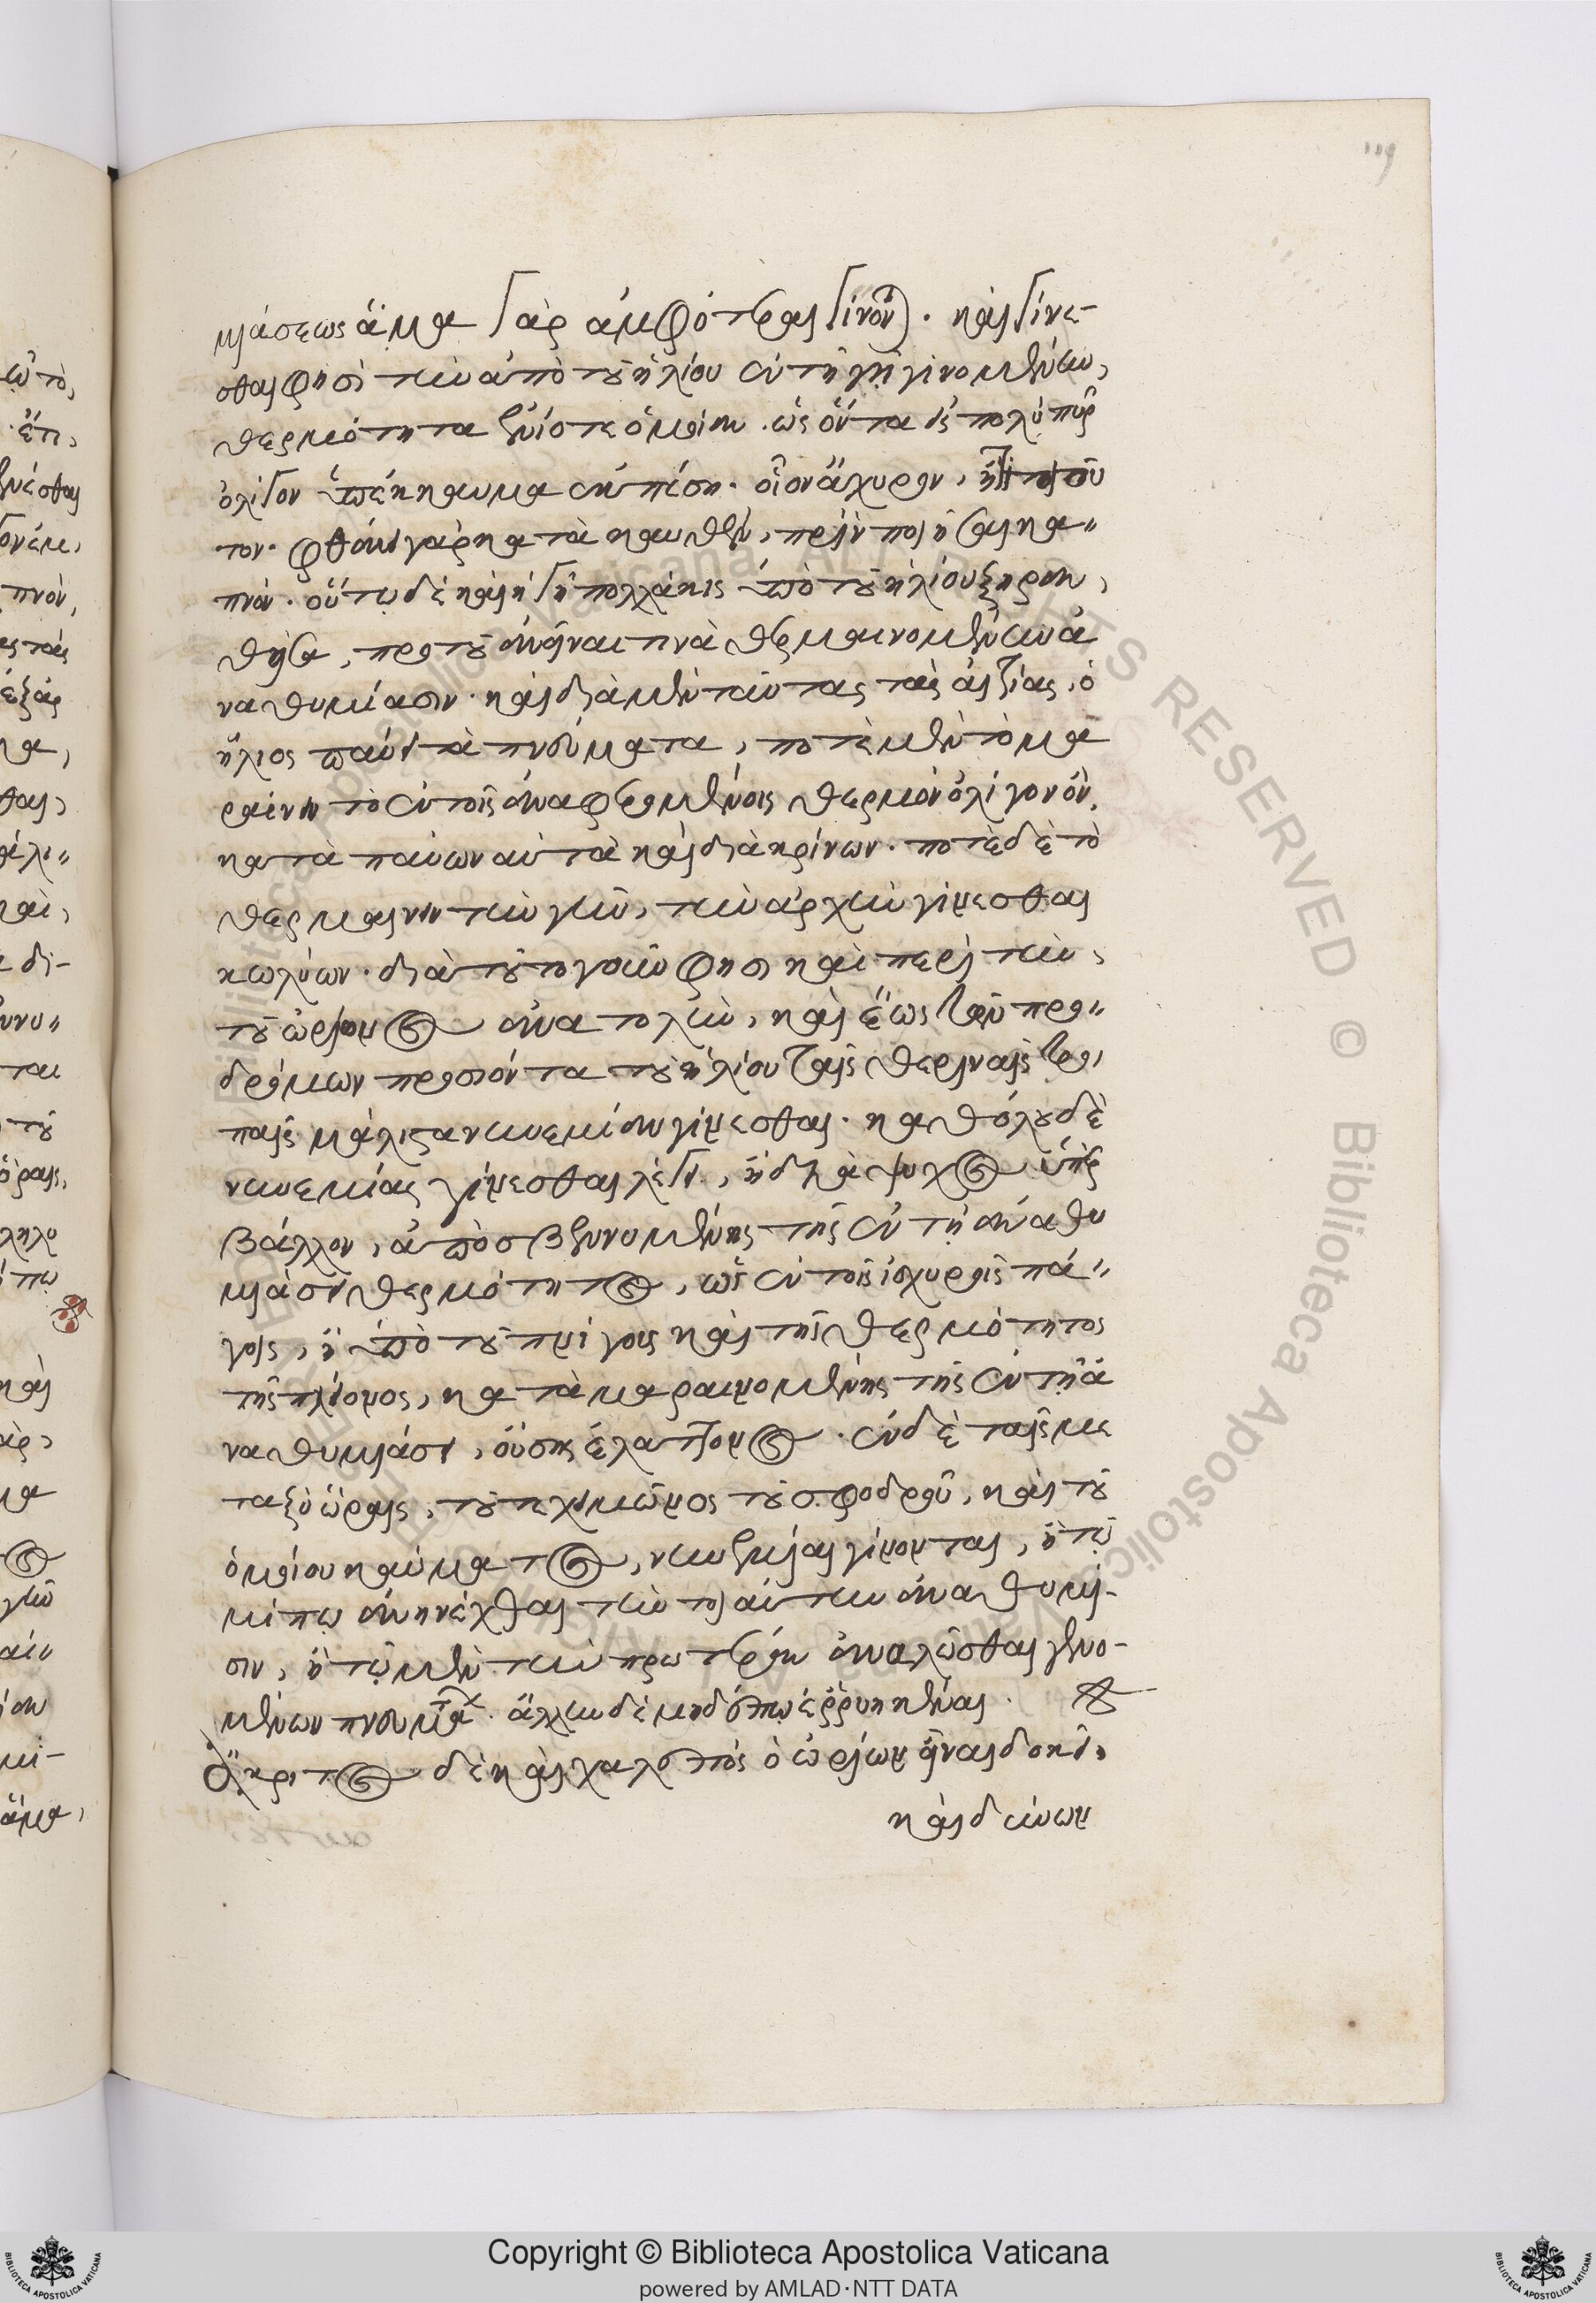 119
μιάσεως ἅμα γὰρ ἀμφότεραι γίνον). καὶ γίνε-
σθαι φησὶ τὴν ἀπὸ τοῦ ἡλίου ἐν τῇ γῇ γινομένην,
θερμότητα ἐνίοτε ὁμοίαν. ὡς ὄντα εἰς πολὺ πῦρ
ὀλίγον ὑπέκκαυμα ἐμπέση. οἷον ἄχυρον,
τον. φθάνει γὰρ κατακαυθὲν, πρὶν ποιῆσαι κα"
πνόν. οὕτω δὲ καὶ ἡ γῆ πολλάκις ὑπὸ τοῦ ἡλίου ξηραν,
θεῖσα, πρὸ τοῦ ἀνεῖναι τινὰ θερμαινομένην ἀ
ναθυμίασιν. καὶ διὰ μὲν ταύτας τὰς αἰτίας, ὁ
ἥλιος παύει τὰ πνεύματα, ποτὲ μὲν τὸ μα
ραίνειν τὸ ἐν τοῖς ἀναφερομένοις θερμὸν ὀλίγον ὂν,
καταπαύων αὐτὰ καὶ διακρίνων. ποτὲ δὲ τὸ
θερμαίνειν τὴν γῆν, τὴν ἀρχὴν γίνεσθαι
κωλύων. διὰ τοῦτο γοῦν φησι καὶ περὶ τὴν,
τοῦ ὠρίονος ἀνατολὴν, καὶ ἕως τῶν προ"
δρόμων προσιόντα τοῦ ἡλίου ταῖς θεριναῖς τρο,
παῖς μάλιστα νηνεμίαν γίνεσθαι. καθόλου δὲ
νηνεμίας γίνεσθαι λέγει, ἢ διὰ ψύχος ὑπὲρ
βάλλον, ἀποσβεννυμένης τῆς ἐν τῇ ἀναθυ
μιάσει θερμότητος, ὡς ἐν τοῖς ἰσχυροῖς πά"
γοις, ἢ ὑπὸ τοῦ πνίγους καὶ τῆς θερμότητος
τῆς πλείονος, καταμαραινομένης τῆς ἐν τῇ ἀ
ναθυμιάσει, οὔσης ἐλάττονος. ἐν δὲ ταῖς με
ταξὺ ὥραις, τοῦ τε χειμῶνος τοῦ σφοδροῦ, καὶ τοῦ
ὁμοίου καύματος, νηνεμίαι γίνονται, ἢ τῷ
μήπω ἀνηνέχθαι τὴν τοιαύτην ἀναθυμί-
σιν, ἢ τῷ μὲν τὴν προτέραν ἀναλῶσθαι γενο-
μένων πνευμάτων. ἄλλην δὲ μηδέπω ἐρρυηκέναι.
ἄκριτος δὲ καὶ χαλεπὸς ὁ ὠρίων εἶναι δοκεῖ,
καὶ δύνων